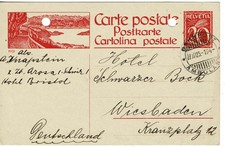 Carte postale
Postkarte
Cartolina postale
HELVETIA
20
Abs.
A. Knapstein
z. Zt. Arosa (Schweiz)
Hotel Bristol
Hotel
Schwarzer Bock
Wiesbaden
Kranzplatz 12
Deutschland